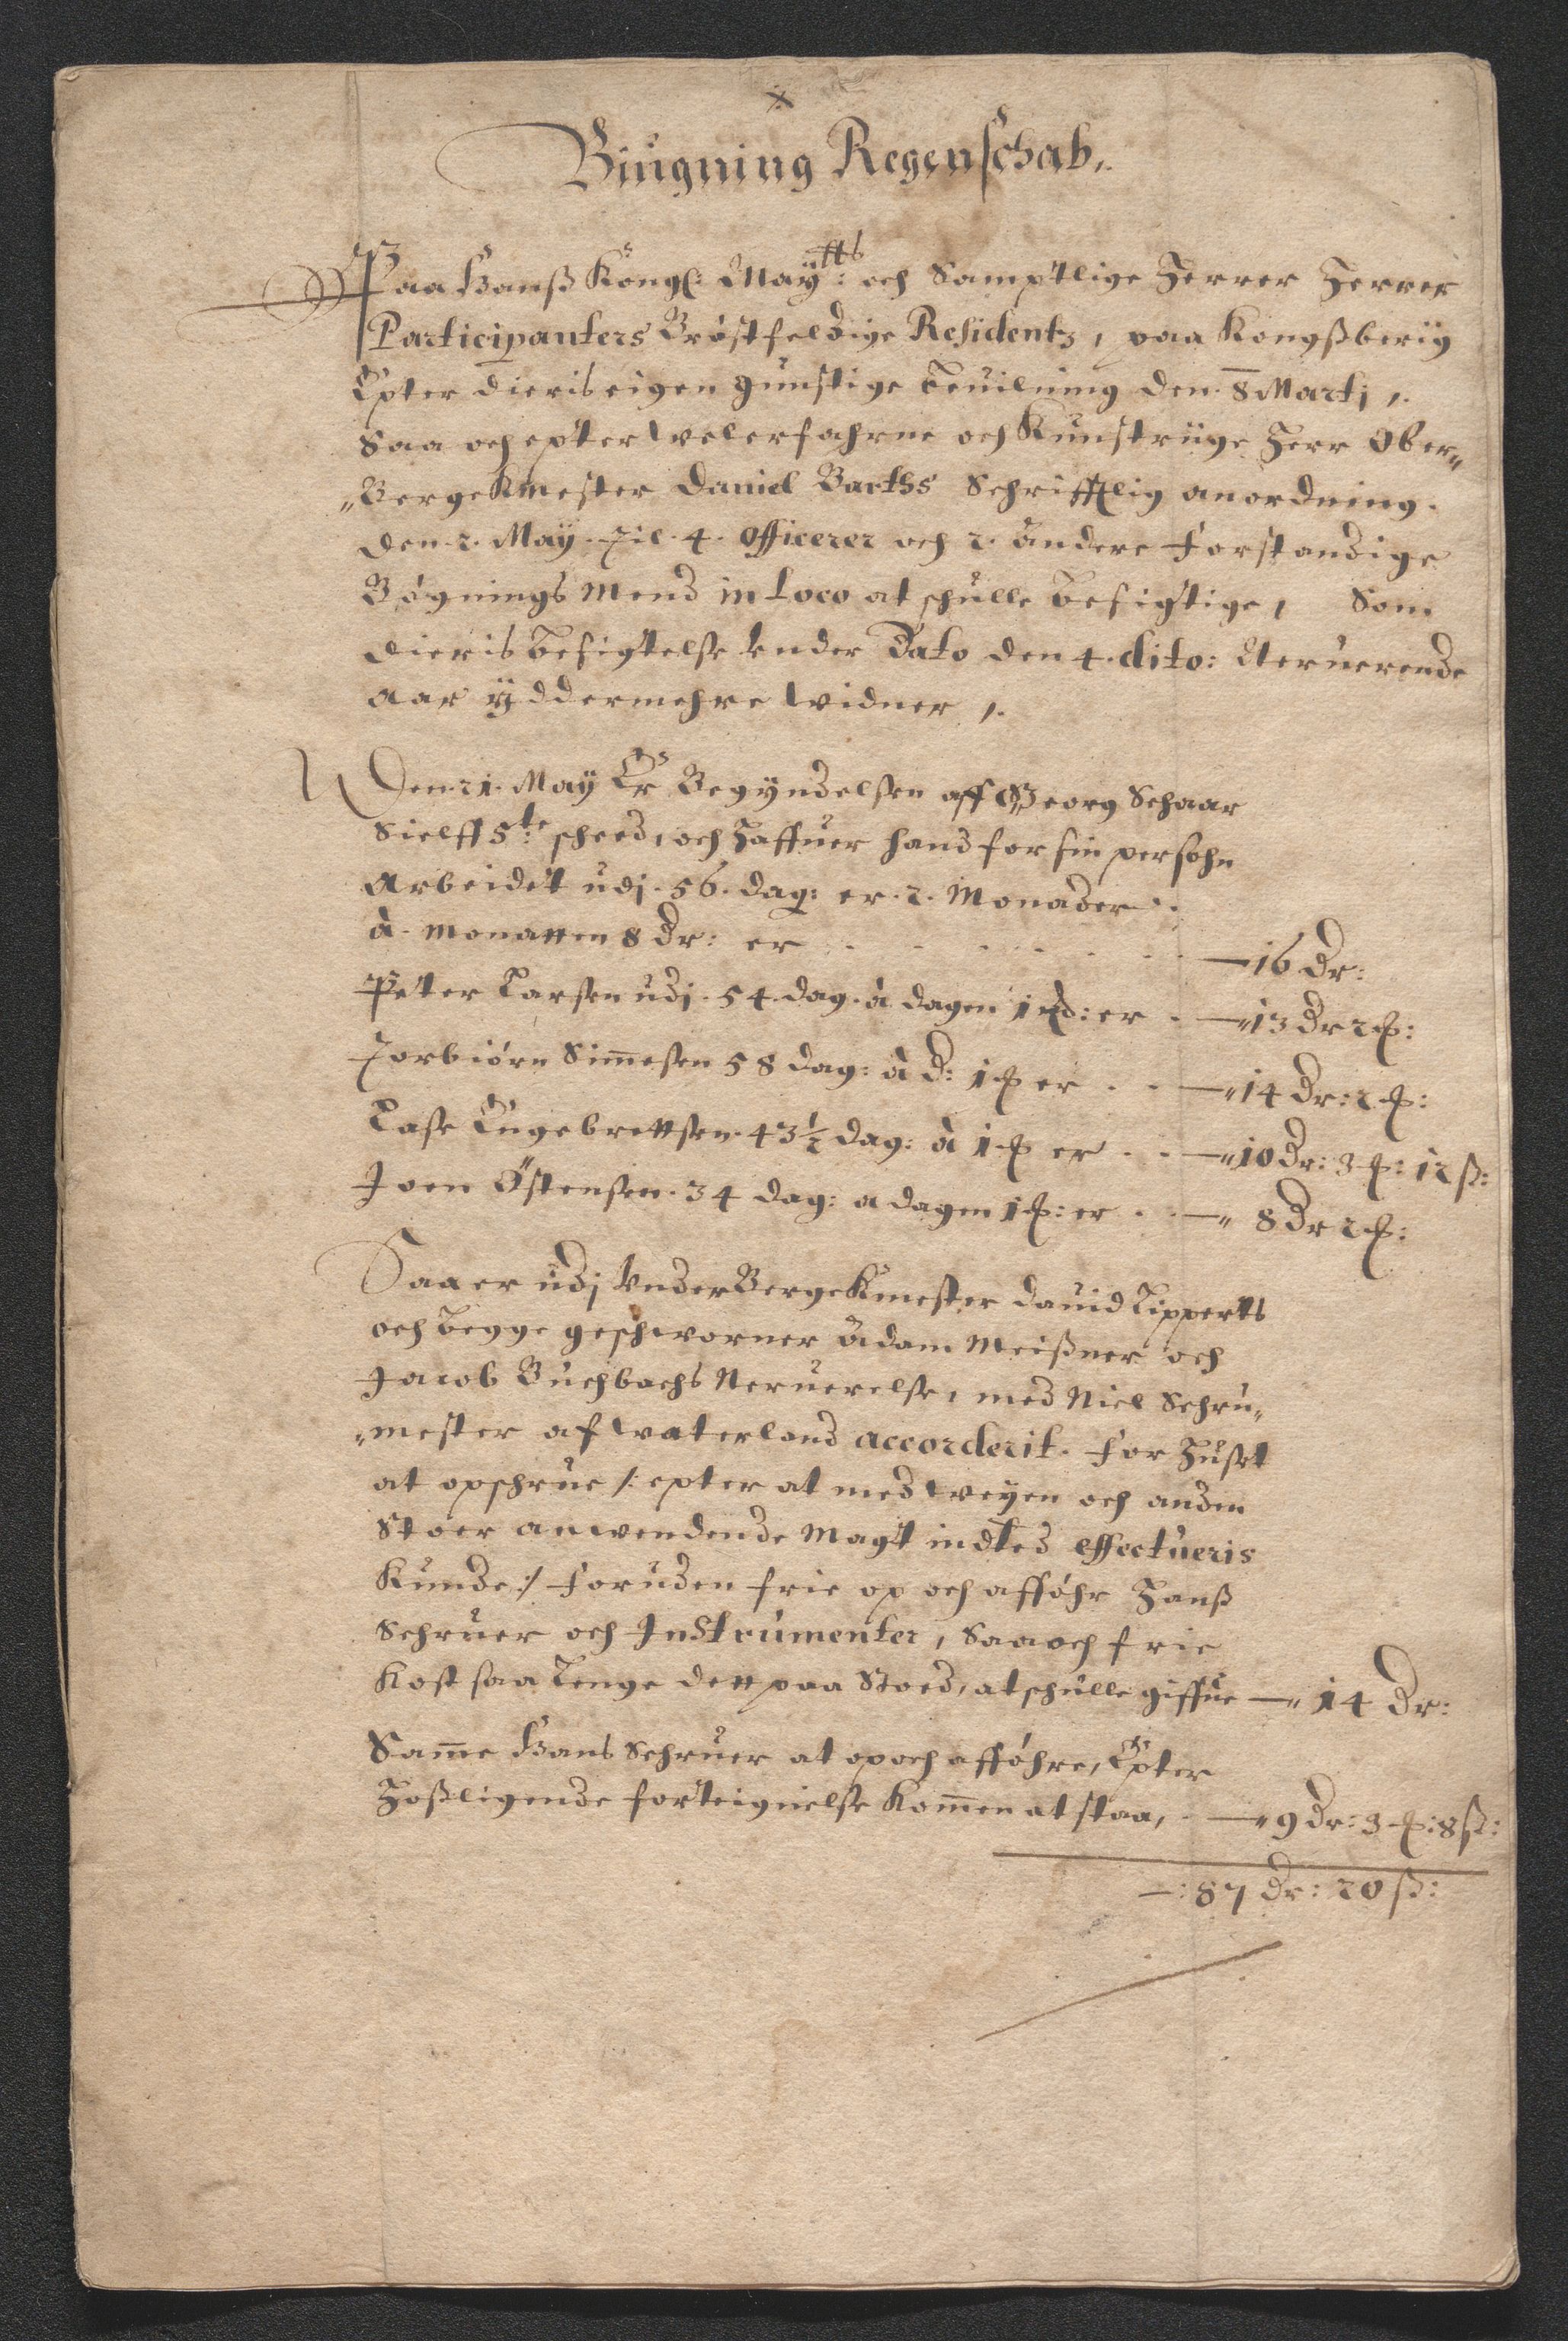 Biugning Regenschab,.
Paa Hanß Kongl: Maÿtts: och Samptlige Herrer Herrer
Participanters Brøstfeldige Residentz, paa Kongßberiig
Epter dieris eigen gunstige beuilning den 8 Martj,.
Saa och epter welerfahrne och Kunstriige Herr Ober„
„Bergekmester Daniel Barths Schrifftlig anordning.
den 2. Maÿ. til 4. Officerer och 2. andere forstandige
Bögnings Mend in Loco at schulle besigtige, Som
dieris besigtelse Under Dato den 4. dito: Neruerende
aar ÿddermehre widner,.
Den 21. Maÿ Er Begÿndelsen aff Georg Schaar
Sielff 5te: scheed, och Haffuer hand for sin persohn
Arbeidet udj. 56. dag: er. 2. Monader.
à. Monatten 8 Dr: er — 16 Dr:
Peter Larsen udj. 54. dag. à dagen 1 ꝑ: er — 13 Dr 2 ꝑ:
Torbiörn Simesen 58 dag: à d: 1 ꝑ er — 14 Dr: 2 ꝑ:
Lase Engebrettsen. 43½ dag: à 1 ꝑ er — 10 Dr: 3 ꝑ: 12 ß:
Joen Östensen. 34 dag: a dagen 1 ꝑ: er — 8 Dr 2 ꝑ:
Saa er udj UnderBergekmester Dauid Lipperts
och begge geschworner Adam Meißner och
Jacob Buchbachs Neruerelse, med Niel Schru„
„mester af waterland accorderit. for Huset
at opschrue /: epter at med weÿen och anden
Stoer anwendende Magt indted effectueris
Kunde :/ foruden frie op och afföhr Hanß
Schruer och Instrumenter, Saa och frie
Kost saa lenge dett paa Stoed, at schulle giffue — 14 Dr:
Same Hans Schruer at op och afföhre, Epter
Hoßligende forteignelse Komen at staa, — 9 Dr: 3 ꝑ: 8 ß:
—: 87 Dr: 20 ß: